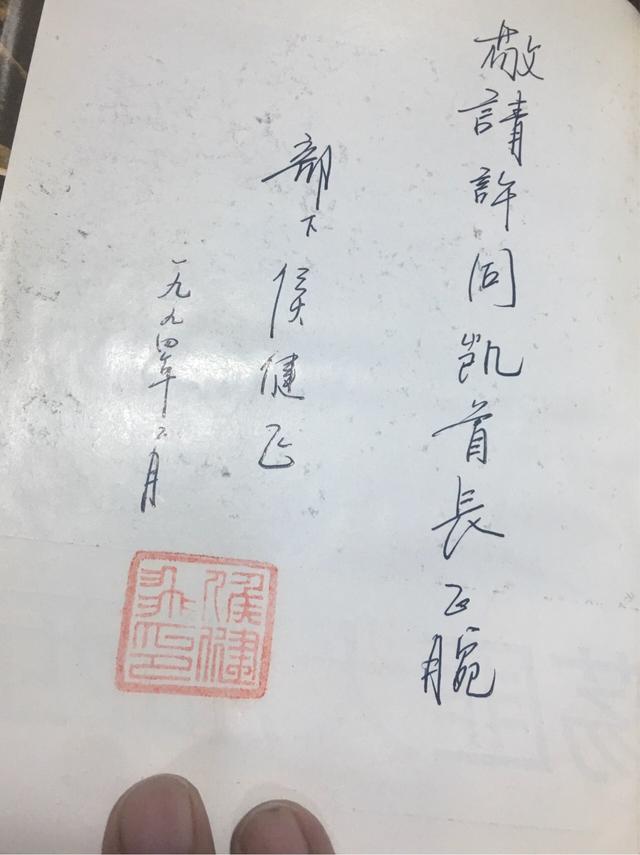 敬請許同凱首長正腕
部下 侯健飞
一九九四年 月
侯健飛印